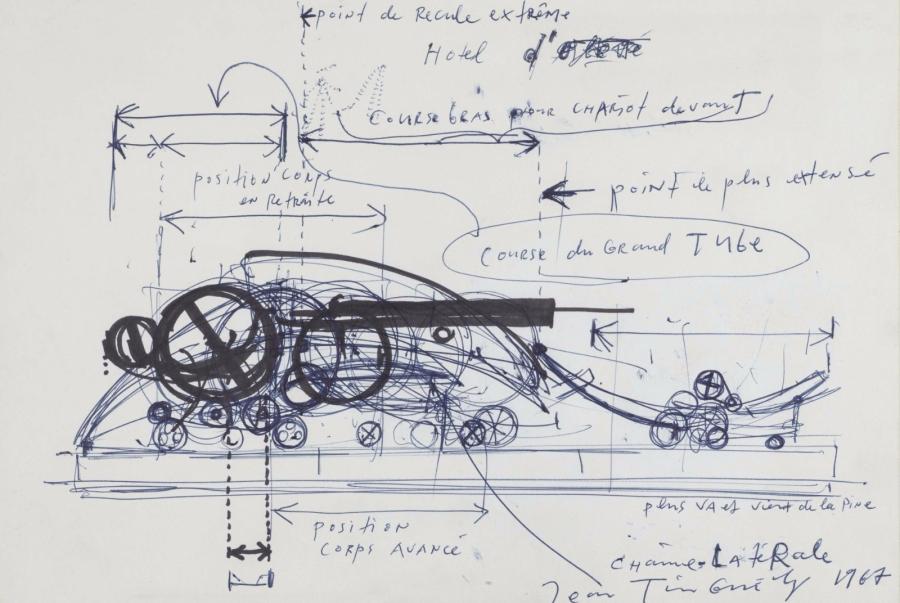 point de Recule extrême
Hotel d'
COURSE bRAS pour CHARiOT devanT
position CORPS
en RetRaite
point le plus extensé
COURSE du GRAND TUbe
plus VA et vient de la Pine
position
CORPS AVANCÉ
CHAîne LATéRale
Jean Tinguely 1967